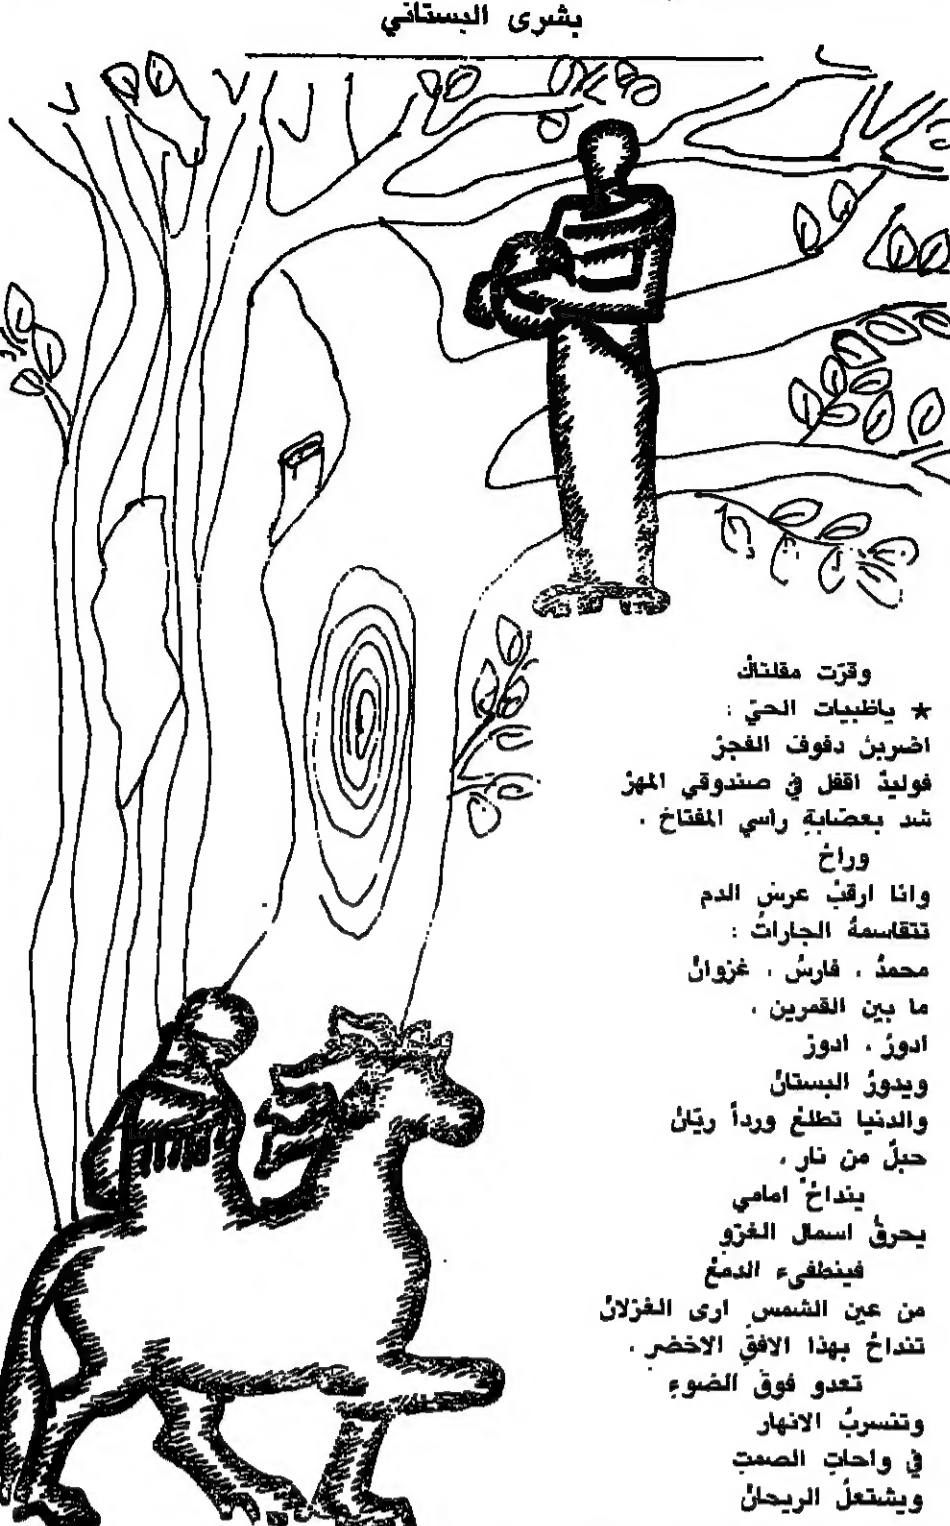 بشرى البستاني
وقرّت مقلتاكْ
★ ياظبيات الحيّ :
اضربنْ دفوفَ الفجرْ
فوليدٌ اقفل في صندوقي المهرْ
شد بعصّابةِ راسي المفتاحْ .
وراحْ
وانا ارقبُ عرسَ الدم
تتقاسمهُ الجاراتُ :
محمدُ ، فارسُ ، غزوانْ
ما بين القمرين ،
ادورُ ، ادورُ
ويدورُ البستانْ
والدنيا تطلعُ ورداً ريّانْ
حبلٌ من نارٍ ،
ينداحُ امامي
يحرقُ اسمال الغزوِ
فينطفىء الدمعْ
من عين الشمسِ ارى الغزلانْ
تنداحُ بهذا الافقِ الاخضرِ .
تعدو فوقَ الضوءِ
وتنسربُ الانهار
في واحاتِ الصمتِ
ويشتعلُ الريحانْ